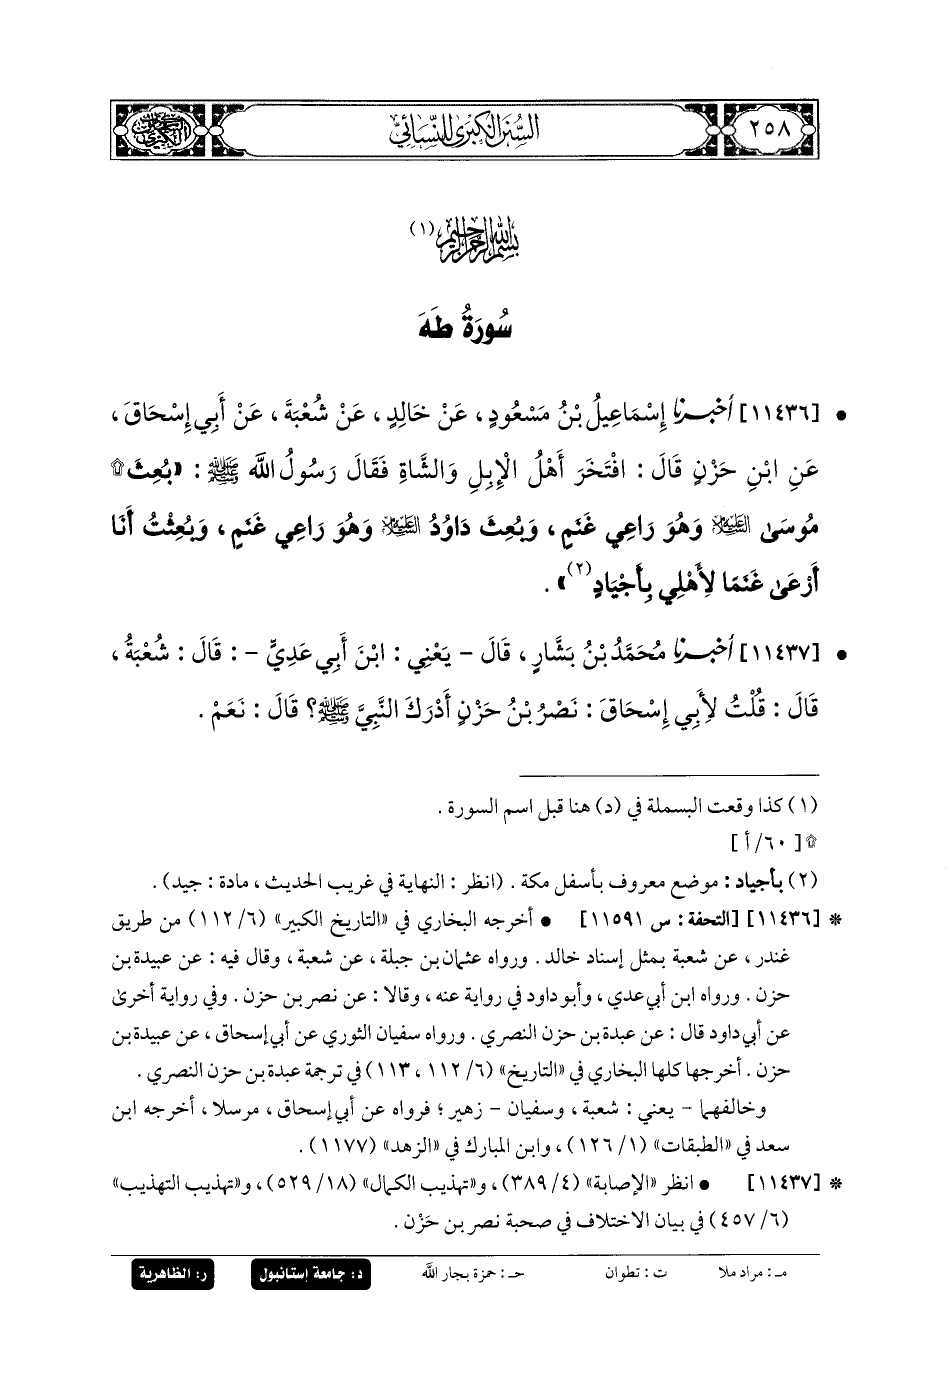 ٢٥٨
السُّنَنُ الكِبْرَى لِلنَّسَائِيِّ
بِسْمِ اللَّهِ الرَّحْمَنِ الرَّحِيمِ (١)
سُورَةُ طَهَ
• [١١٤٣٦] أخبرنا إِسْمَاعِيلُ بْنُ مَسْعُودٍ، عَنْ خَالِدٍ، عَنْ شُعْبَةَ، عَنْ أَبِي إِسْحَاقَ،
عَنِ ابْنِ حَزْنٍ قَالَ: افْتَخَرَ أَهْلُ الْإِبِلِ وَالشَّاةِ فَقَالَ رَسُولُ اللَّهِ ﷺ: «بُعِثَ ۩
مُوسَىٰ عَلَيْهِ السَّلَامُ وَهُوَ رَاعِي غَنَمٍ، وَبُعِثَ دَاوُدُ عَلَيْهِ السَّلَامُ وَهُوَ رَاعِي غَنَمٍ، وَبُعِثْتُ أَنَا
أَرْعَىٰ غَنَمًا لِأَهْلِي بِأَجْيَادٍ(٢)».
• [١١٤٣٧] أخبرنا مُحَمَّدُ بْنُ بَشَّارٍ، قَالَ - يَعْنِي: ابْنَ أَبِي عَدِيٍّ -: قَالَ: شُعْبَةُ،
قَالَ: قُلْتُ لِأَبِي إِسْحَاقَ: نَصْرُ بْنُ حَزْنٍ أَدْرَكَ النَّبِيَّ ﷺ؟ قَالَ: نَعَمْ.
(١) كذا وقعت البسملة في (د) هنا قبل اسم السورة.
۩ [٦٠/أ]
(٢) بأجياد: موضع معروف بأسفل مكة. (انظر: النهاية في غريب الحديث، مادة: جيد).
* [١١٤٣٦] [التحفة: س ١١٥٩١] • أخرجه البخاري في «التاريخ الكبير» (٦/١١٢) من طريق
غندر، عن شعبة بمثل إسناد خالد. ورواه عثمان بن جبلة، عن شعبة، وقال فيه: عن عبيدة بن
حزن. ورواه ابن أبي عدي، وأبو داود في رواية عنه، وقالا: عن نصر بن حزن. وفي رواية أخرىٰ
عن أبي داود قال: عن عبدة بن حزن النصري. ورواه سفيان الثوري عن أبي إسحاق، عن عبيدة بن
حزن. أخرجها كلها البخاري في «التاريخ» (٦/ ١١٢، ١١٣) في ترجمة عبدة بن حزن النصري.
وخالفهما - يعني: شعبة، وسفيان - زهير؛ فرواه عن أبي إسحاق، مرسلا، أخرجه ابن
سعد في «الطبقات» (١/ ١٢٦)، وابن المبارك في «الزهد» (١١٧٧).
* [١١٤٣٧] • انظر «الإصابة» (٤/ ٣٨٩)، و«تهذيب الكمال» (١٨/ ٥٢٩)، و«تهذيب التهذيب»
(٦/ ٤٥٧) في بيان الاختلاف في صحبة نصر بن حَزْن.
مـ: مراد ملا ت: تطوان حـ: حمزة بجار اللَّه د: جامعة إستانبول ر: الظاهرية